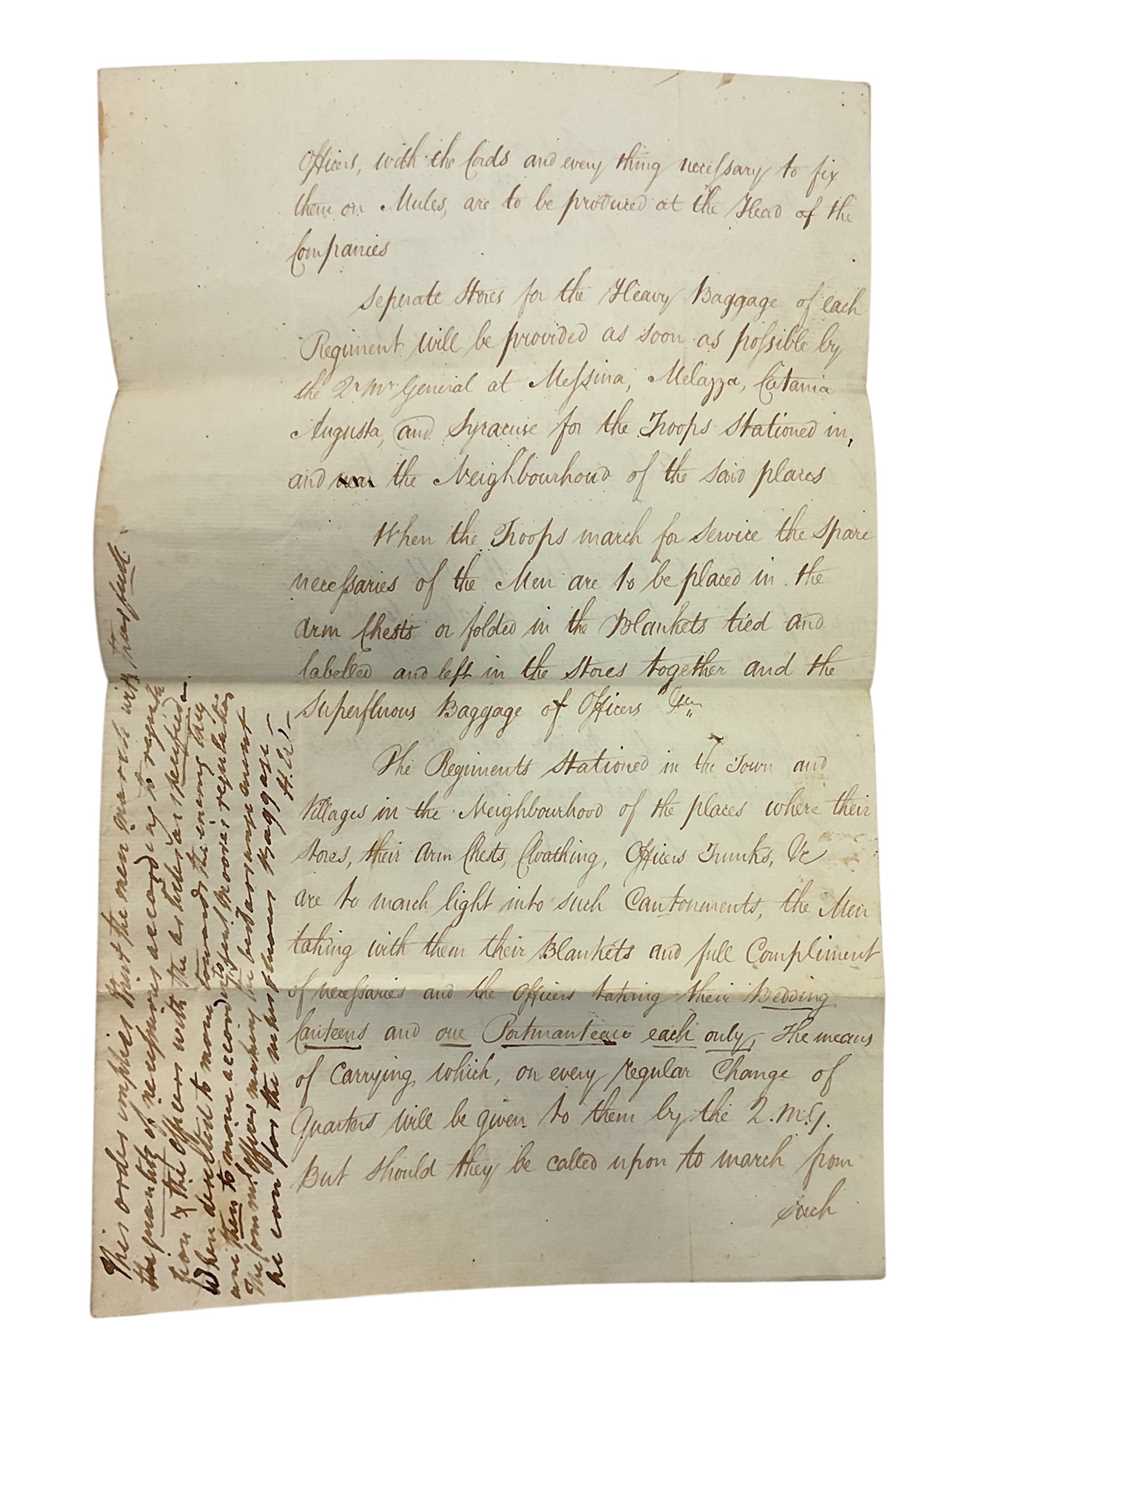 Officers, with the Cords and every thing necessary to fix
them on Mules, are to be produced at the Head of the
Companies
Seperate Stores for the Heavy Baggage of each
Regiment will be provided as soon as possible by
the Qr. Mr. General at Messina, Melazza, Catania
Augusta, and Syracuse for the Troops stationed in,
and the Neighbourhood of the said places
When the Troops march for Service the spare
necessaries of the Men are to be placed in the
Arm Chests or folded in the Blankets tied and
labelled and left in the Stores together and the
superfluous Baggage of Officers &c
The Regiments stationed in the Town and
Villages in the Neighbourhood of the places where their
stores, their Arm Chests, Cloathing, Officers Trunks, &c
are to march light into such Cantonments, the Men
taking with them their Blankets and full Compliment
of necessaries and the Officers taking their Bedding
Canteens and one Portmanteau each only, The means
of Carrying which, on every regular Change of
Quarters will be given to them by the Q. M. G.
But should they be called upon to march from
such
This order implies that the men march with
the quantity of necessaries according to
& the officers with the articles as specified.
When directed to move towards the enemy they
are then to move according to
The Comm.g Officer making the best arrangement
he can for the superfluous Baggage